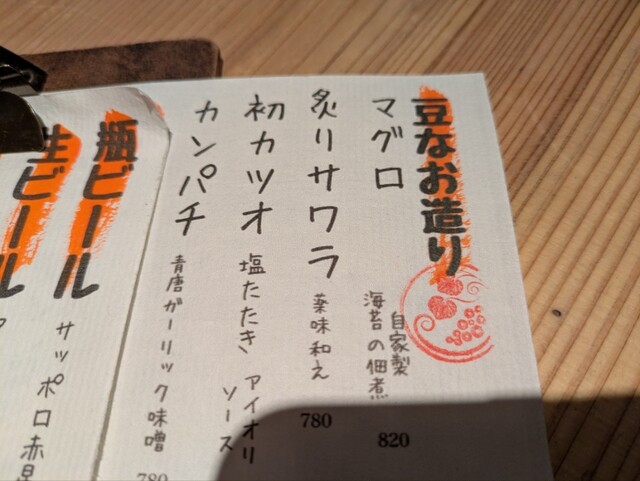 豆なお造り
マグロ
自家製
海苔の佃煮
820
炙りサワラ
薬味和え
780
初カツオ
塩たたき アイオリ
ソース
カンパチ
青唐ガーリック味噌
780
瓶ビール
サッポロ赤星
生ビール